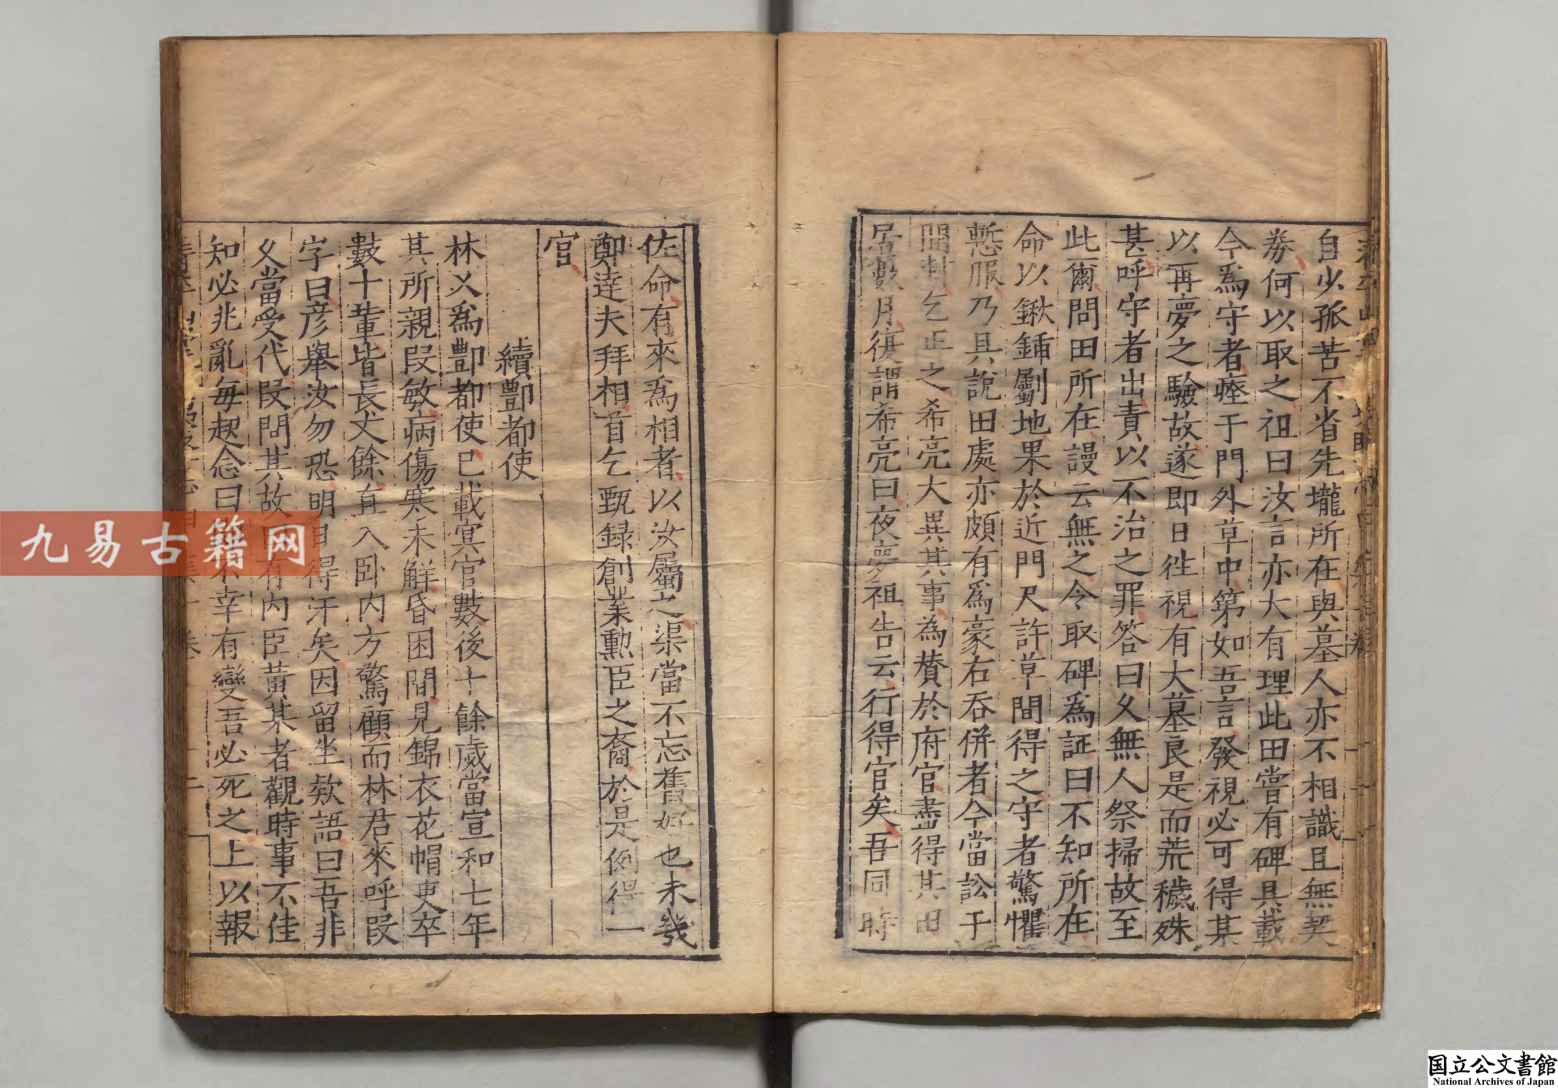 自少孤苦不省先壠所在與墓人亦不相識且無契
券何以取之祖曰汝言亦大有理此田嘗有碑具載
今爲守者瘞于門外草中第如吾言發視必可得某
以再夢之驗故遂即日徃視有大墓艮是而荒穢殊
甚呼守者出責以不治之罪答曰乆無人祭掃故至
此爾問田所在謾云無之令取碑爲証曰不知所在
命以鍬鍤劚地果於近門尺許草間得之守者驚懼
慙服乃具說田處亦頗有爲豪右吞併者今當訟于
開封乞正之希亮大異其事為賛於府官盡得其田
居數月復謂希亮曰夜夢祖告云行得官矣吾同時
佐命有來爲相者以汝屬之渠當不忘舊好也未幾
鄭逹夫拜相首乞甄録創業勳臣之裔於是例得一
官
續酆都使
林乂爲酆都使已載冥官數後十餘歲當宣和七年
其所親段敏病傷寒未鮮昏困間見錦衣花帽吏卒
數十輩皆長丈餘直入卧内方驚顧而林君來呼段
字曰彦舉汝勿恐明日得汗矣因留坐欵語曰吾非
乆當受代段問其故有内臣黄某者觀時事不佳
知必兆亂毎起念曰不幸有變吾必死之上以報
九易古籍网
国立公文書館
National Archives of Japan